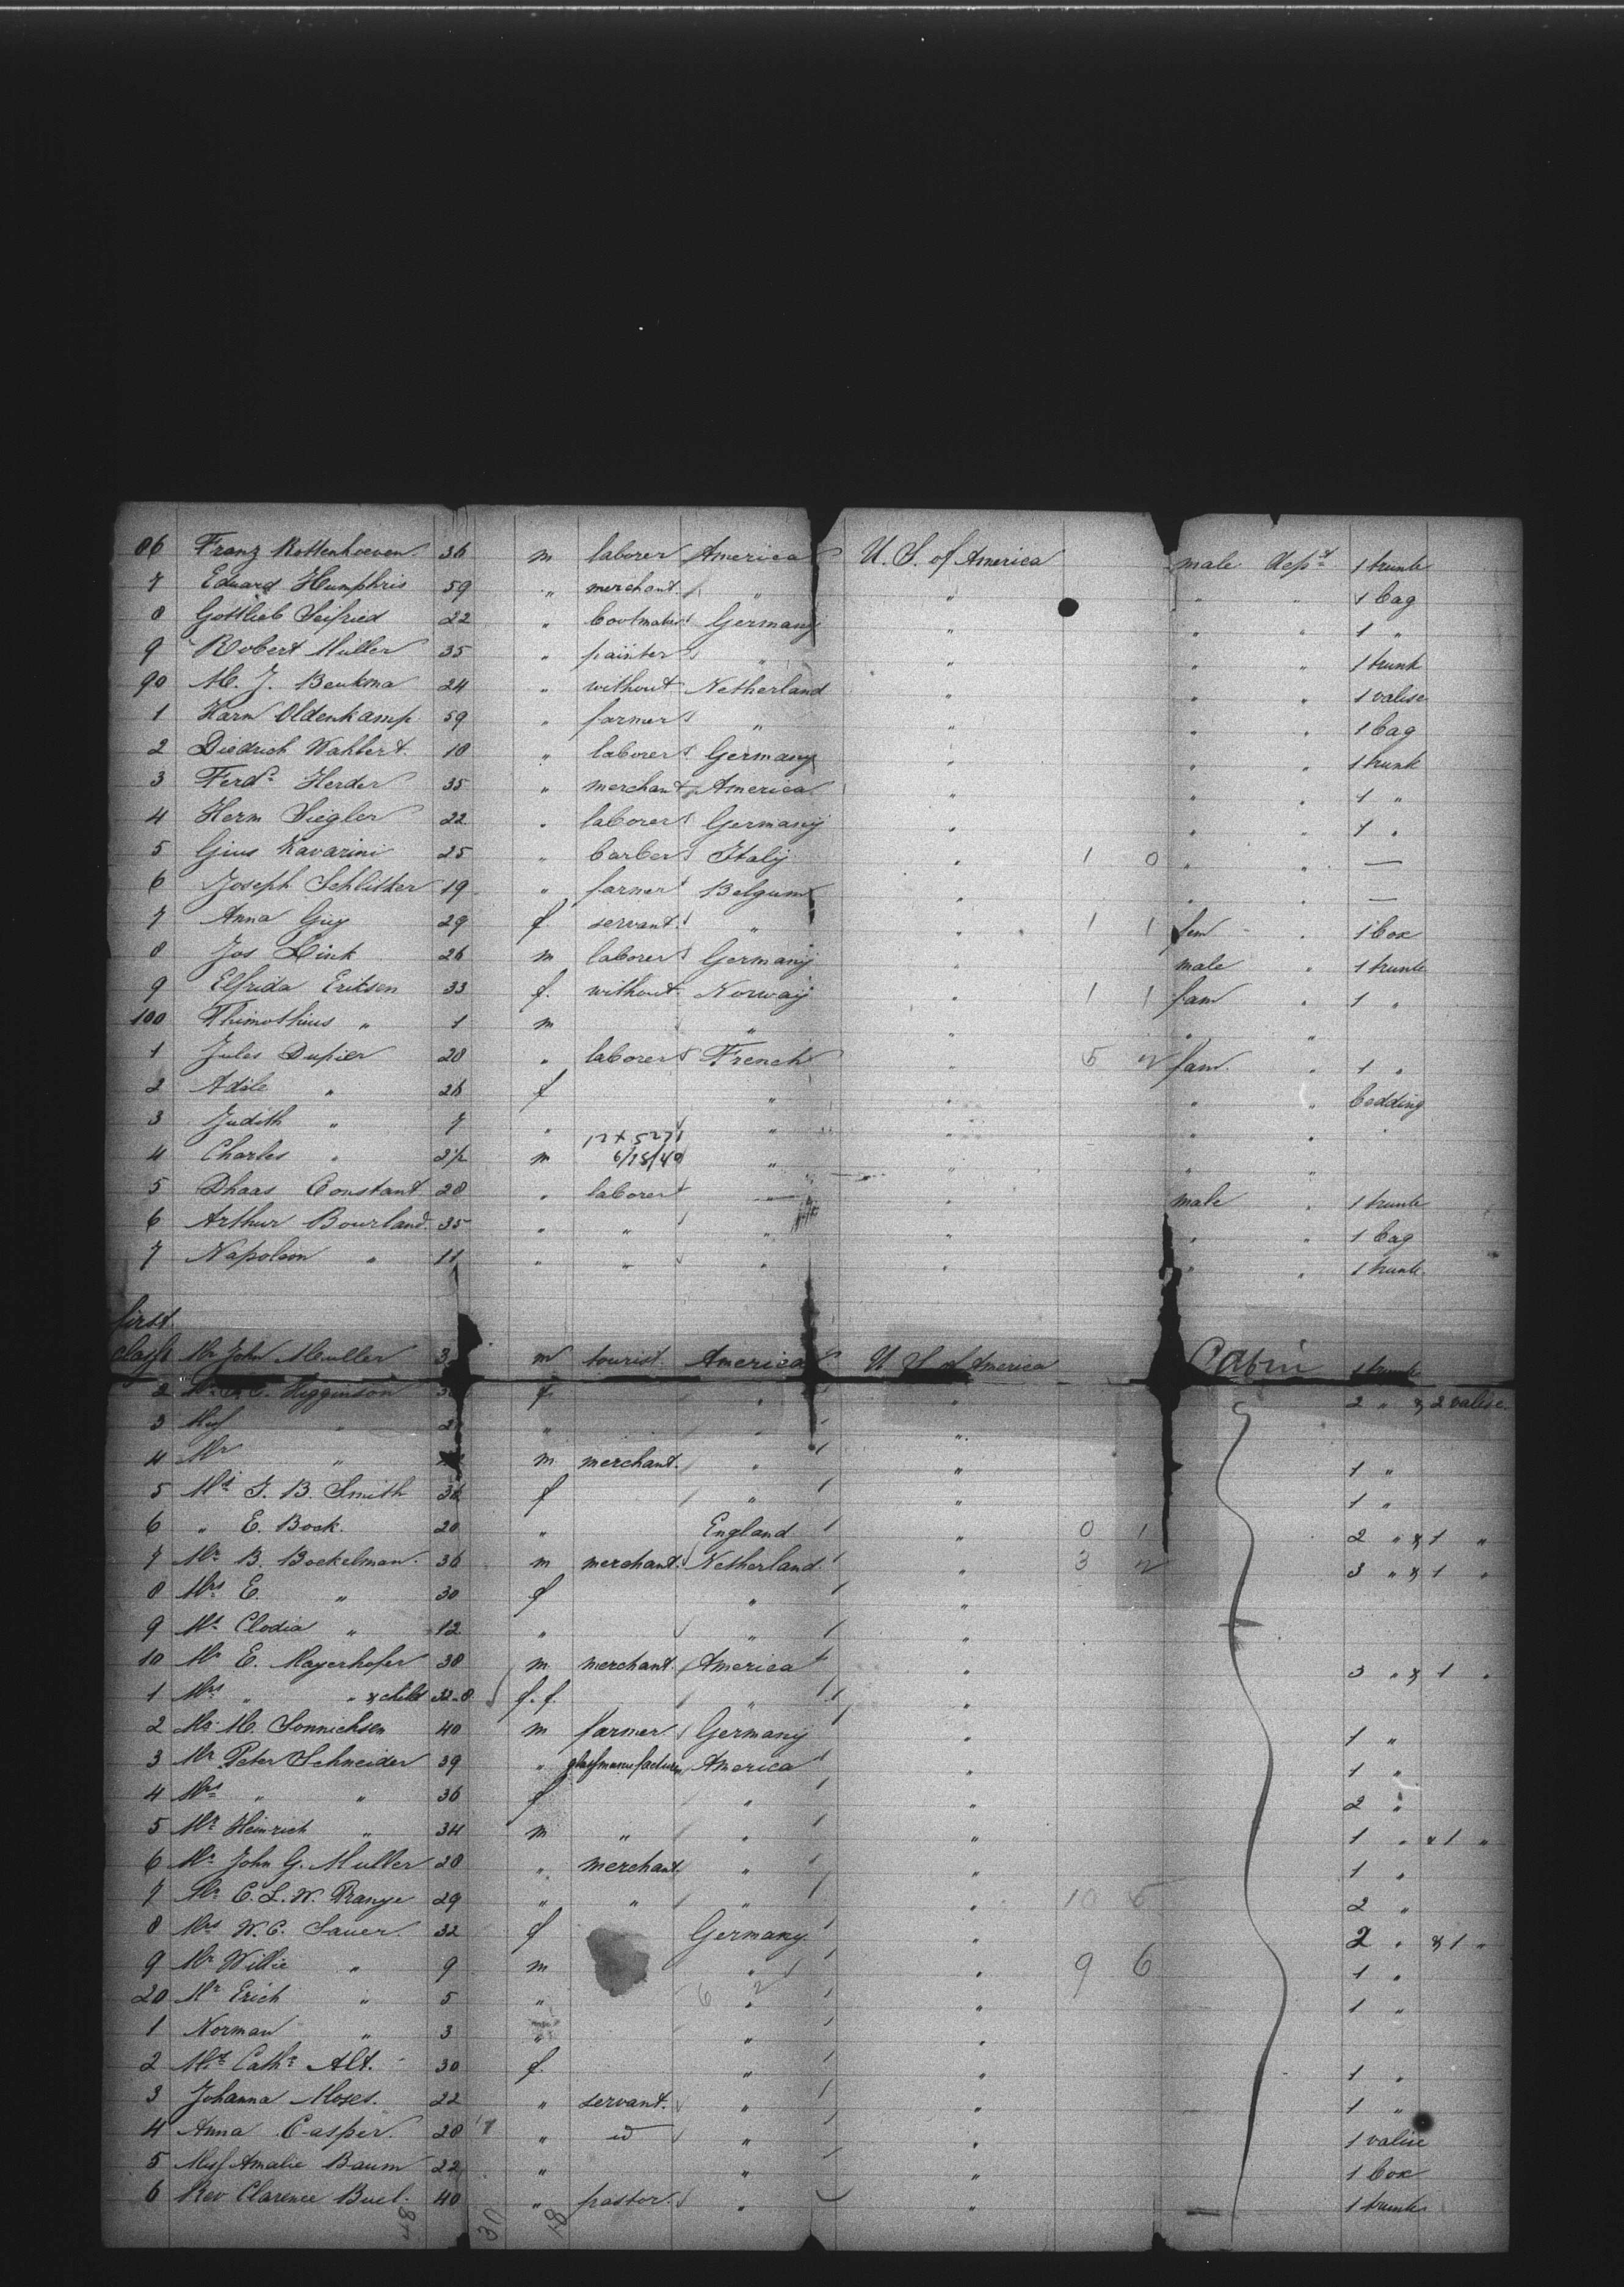 86 Franz Rottenhoeven 36 m laborer America U. S. of America male dept 1 trunk
7 Eduard Humphris 59 " merchant " " " " 1 bag
8 Gottlieb Seifried 22 " Germany " " " 1 "
9 Robert Muller 35 " painter " " " " 1 trunk
90 M. J. Beukma 24 " without Netherland " " " 1 valise
1 Harn Oldenkamp 59 " farmer " " " " 1 bag
2 Diedrich Wahlert 18 " laborer Germany " " " 1 trunk
3 Ferd. Herder 35 " merchant America " " " 1 "
4 Herm Siegler 22 " laborer Germany " " " 1 "
5 Gius Ravarini 25 " barber Italy " 1 0 " " —
6 Joseph Schlitker 19 " farmer Belgium " " " —
7 Anna Guy 29 f. servant " " 1 1 fem " 1 box
8 Jos Link 26 m laborer Germany " male " 1 trunk
9 Elfrida Eriksen 33 f. without Norway " 1 1 fam " 1 "
100 Thimothius " 1 m " " " "
1 Jules Dupier 28 " laborer French " 5 2 fam. " 1 "
2 Adile " 26 f " " " " bedding
3 Judith " 7 " " " " "
12 x 5271
4 Charles " 2½ m 6/18/40 " " " "
5 Dhaas Constant 28 " laborer " " male " 1 trunk
6 Arthur Bourland 35 " " " " " " 1 bag
7 Napoleon " 11 " " " " " " 1 trunk
first
class Mr John Muller m tourist America U. S. of America Cabin 1 trunk
2 Higginson f " " 2 " & 2 valise
3 Miss " " " "
4 Mr " m merchant " " 1 "
5 Ms J. B. Smith 36 f " " 1 "
6 " E. Bock 20 " England " 0 1 2 " & 1 "
7 Mr B. Bockelman 36 m merchant Netherland " 3 2 3 " & 1 "
8 Mrs E. " 30 f " "
9 Ms Clodia " 12 " " "
10 Mr E. Mayerhofer 38 m merchant America " 3 " & 1 "
1 Mrs " " & child 32-8 f. f. " "
2 Mr M. Sonnichsen 40 m farmer Germany " 1 "
3 Mr Peter Schneider 39 " glassmanufacturer America " 1 "
4 Mrs " " 36 f " " 2 "
5 Mr Heinrich " 34 m " " " 1 " & 1 "
6 Mr John G. Muller 28 " merchant " " 1 "
7 Mr C. L. W. Prange 29 " " " " 10 5 2 "
8 Mrs W. C. Sauer 32 f Germany " 2 " & 1 "
9 Mr Willie " 9 m " " 9 6 1 "
20 Mr Erich " 5 " 6 2 " " 1 "
1 Norman " 3 " " "
2 Ms Cath. Alt. 30 f. " " 1 "
3 Johanna Moses. 22 " servant. " " 1 "
4 Anna Casper. 28 " id " " 1 valise
5 Miss Amalie Baum 22 " " " 1 box
6 Rev Clarence Buel. 40 " pastor. " " 1 trunk
30 18